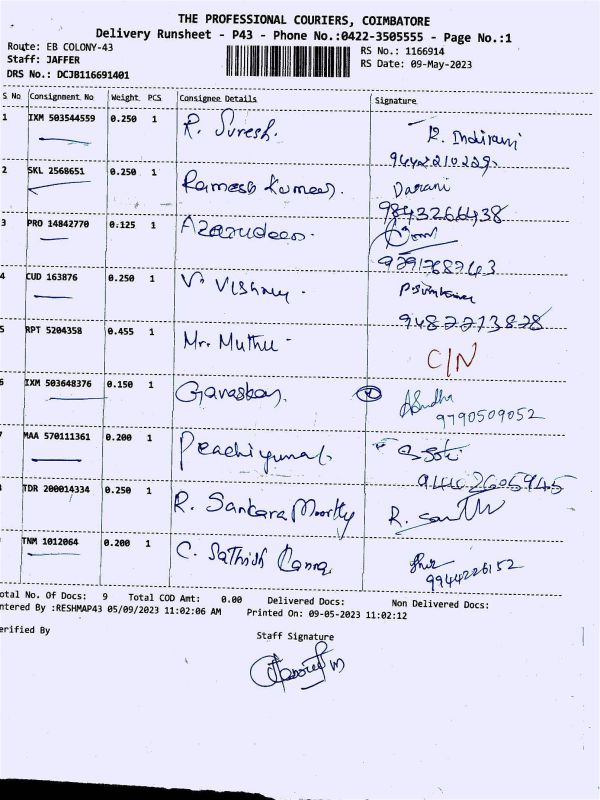 THE PROFESSIONAL COURIERS, COIMBATORE
Delivery Runsheet - P43 - Phone No.:0422-3505555 - Page No.:1
Route: EB COLONY-43
RS No.: 1166914
Staff: JAFFER
RS Date: 09-May-2023
DRS No.: DCJB116691401
S No Consignment No Weight PCS Consignee Details Signature
1 IXM 503544559 0.250 1 R. Suresh. R. Indirani
9442210229
2 SKL 2568651 0.250 1 Ramesh Kumar. Darani
9843266438
3 PRO 14842770 0.125 1 Azarudeen.
9791768743
4 CUD 163876 0.250 1 V. Vishnu.
9487773878
5 RPT 5204358 0.455 1 Mr. Muthu C/N
6 IXM 503648376 0.150 1 Sudha
9790509052
MAA 570111361 0.200 1
TDR 200014334 0.250 1 R. Sankara Moorthy R.
TNM 1012064 0.200 1 C. Sathish
9944226152
otal No. Of Docs: 9 Total COD Amt: 0.00 Delivered Docs: Non Delivered Docs:
ntered By :RESHMAP43 05/09/2023 11:02:06 AM Printed On: 09-05-2023 11:02:12
erified By
Staff Signature